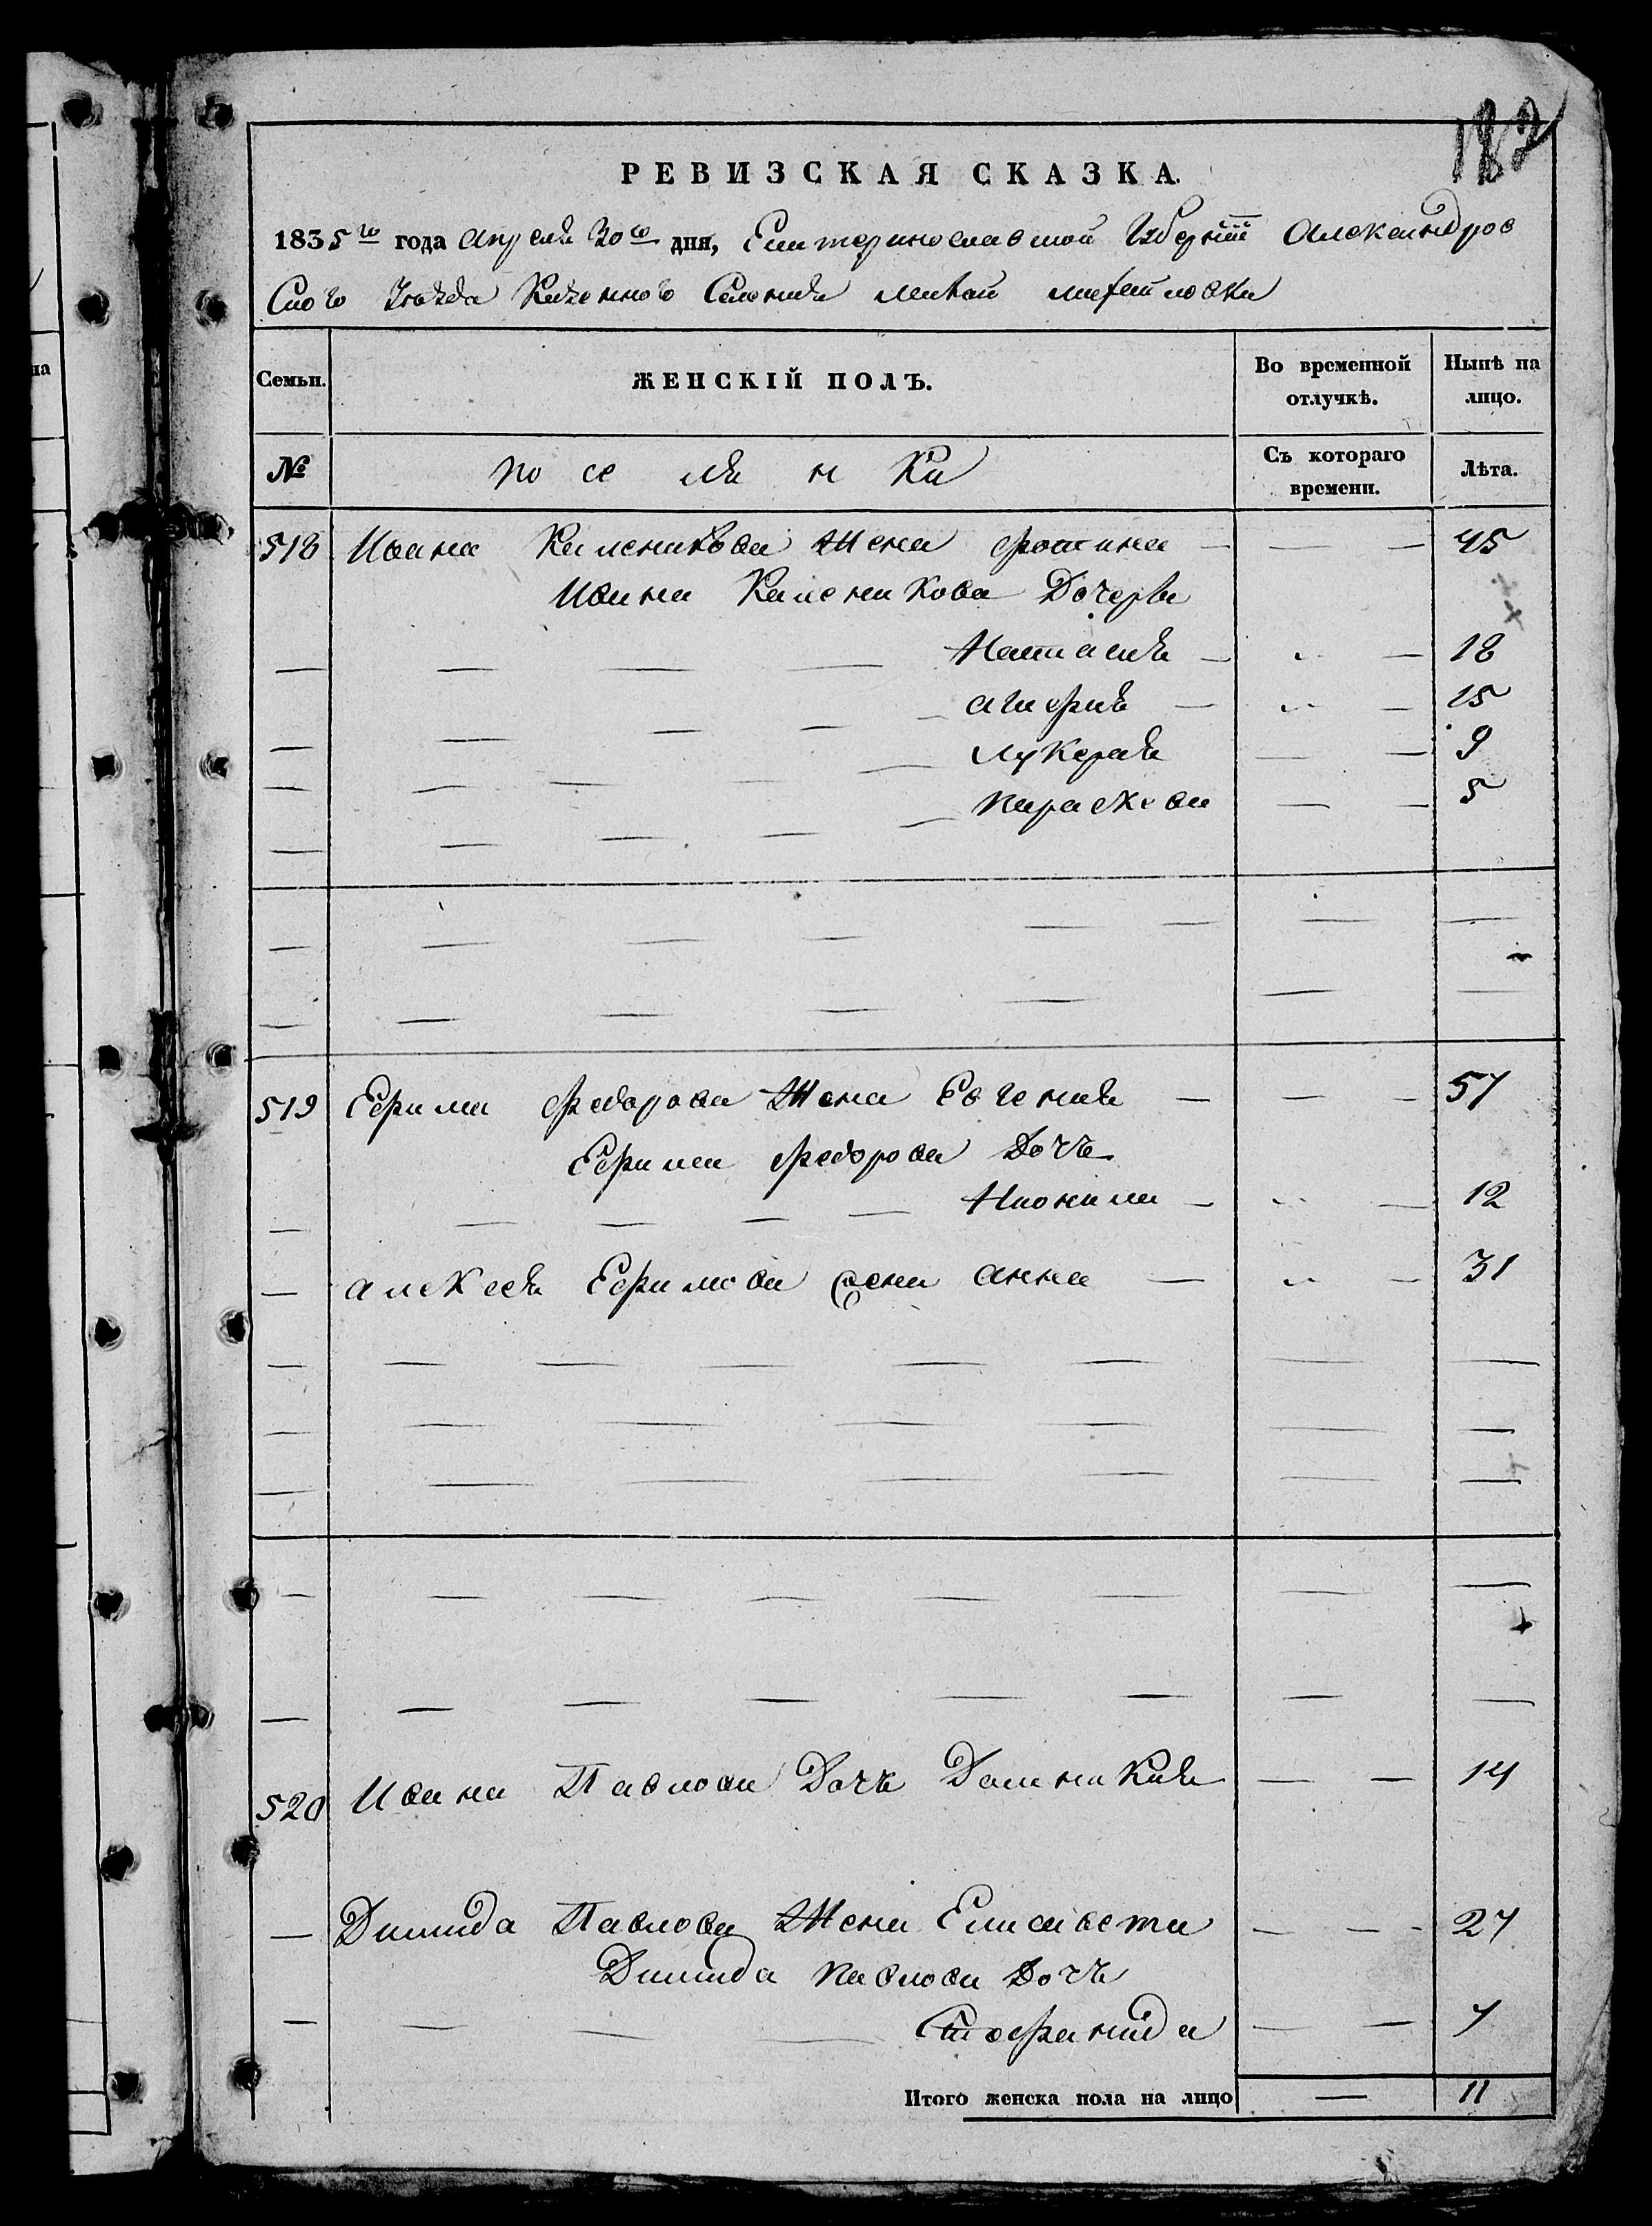 182
РЕВИЗСКАЯ СКАЗКА.
1835го года апреля 30го дня, Екатеринославской Губернии Александров
ского Уезда Казенного Селения малой михайловки
Семьи. ЖЕНСКІЙ ПОЛЪ. Во временной отлучкѣ. Нынѣ на лицо.
№ по се ля н ки Съ котораго времени. Лѣта.
518 Ивана Каленикова Жена фотина — — — 45
Ивана Каленикова Дочери
— — — — Наталя — „ — 18
— — — — — агафия — „ — 15
— — — — — лукеря — — 9
— — — — — параскева — — 5
519 Ефима федорова Жена Евгения — — — 57
Ефима федорова Дочь
— — — — — — „ — 12
— алексея Ефимова жена анна — „ — 31
520 Ивана Павлова Дочь Доминикия — — 14
— Демида Павлова Жена Елисавета — — - 27
Демида павлова Дочь
— — — — — — 7
Итого женска пола на лицо — 11
на